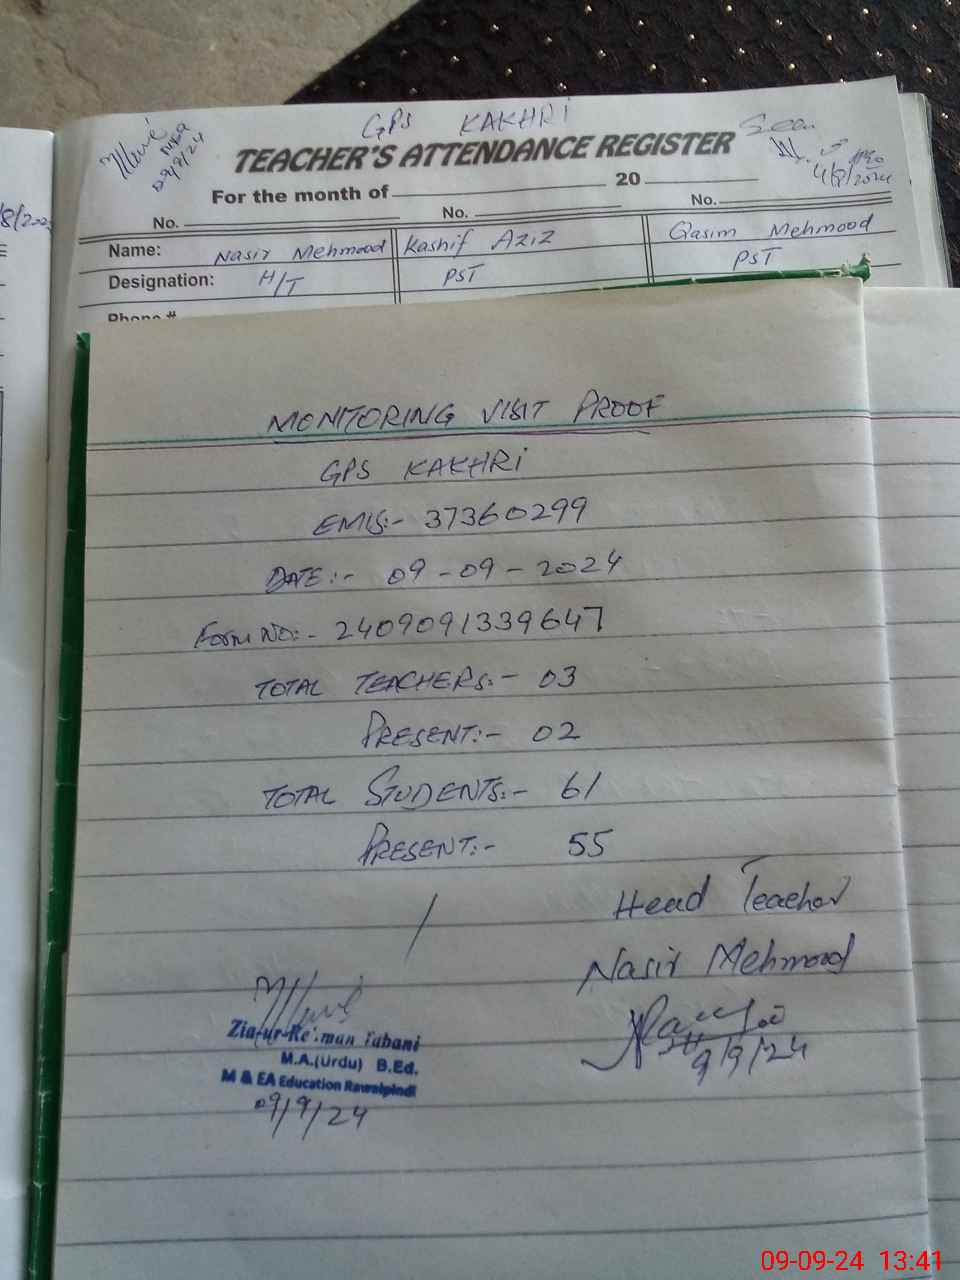 GPS KAKHRi
TEACHER'S ATTENDANCE REGISTER
MEA
09/9/24
Seen
4/9/2024
For the month of 20
No. No. No.
Name: Nasir Mehmood Kashif Aziz Qasim Mehmood
Designation: H/T PST PST
Phone #
MONITORING VISIT PROOF
GPS KAKHRi
EMIS:- 37360299
DATE:- 09-09-2024
Form NO:- 2409091339647
TOTAL TEACHERS:- 03
PRESENT:- 02
TOTAL STUDENTS:- 61
PRESENT:- 55
Head Teacher
Nasir Mehmood
9/9/24
Zia-ur-Rehman Tabani
M.A.(Urdu) B.Ed.
M & EA Education Rawalpindi
09/9/24
09-09-24 13:41